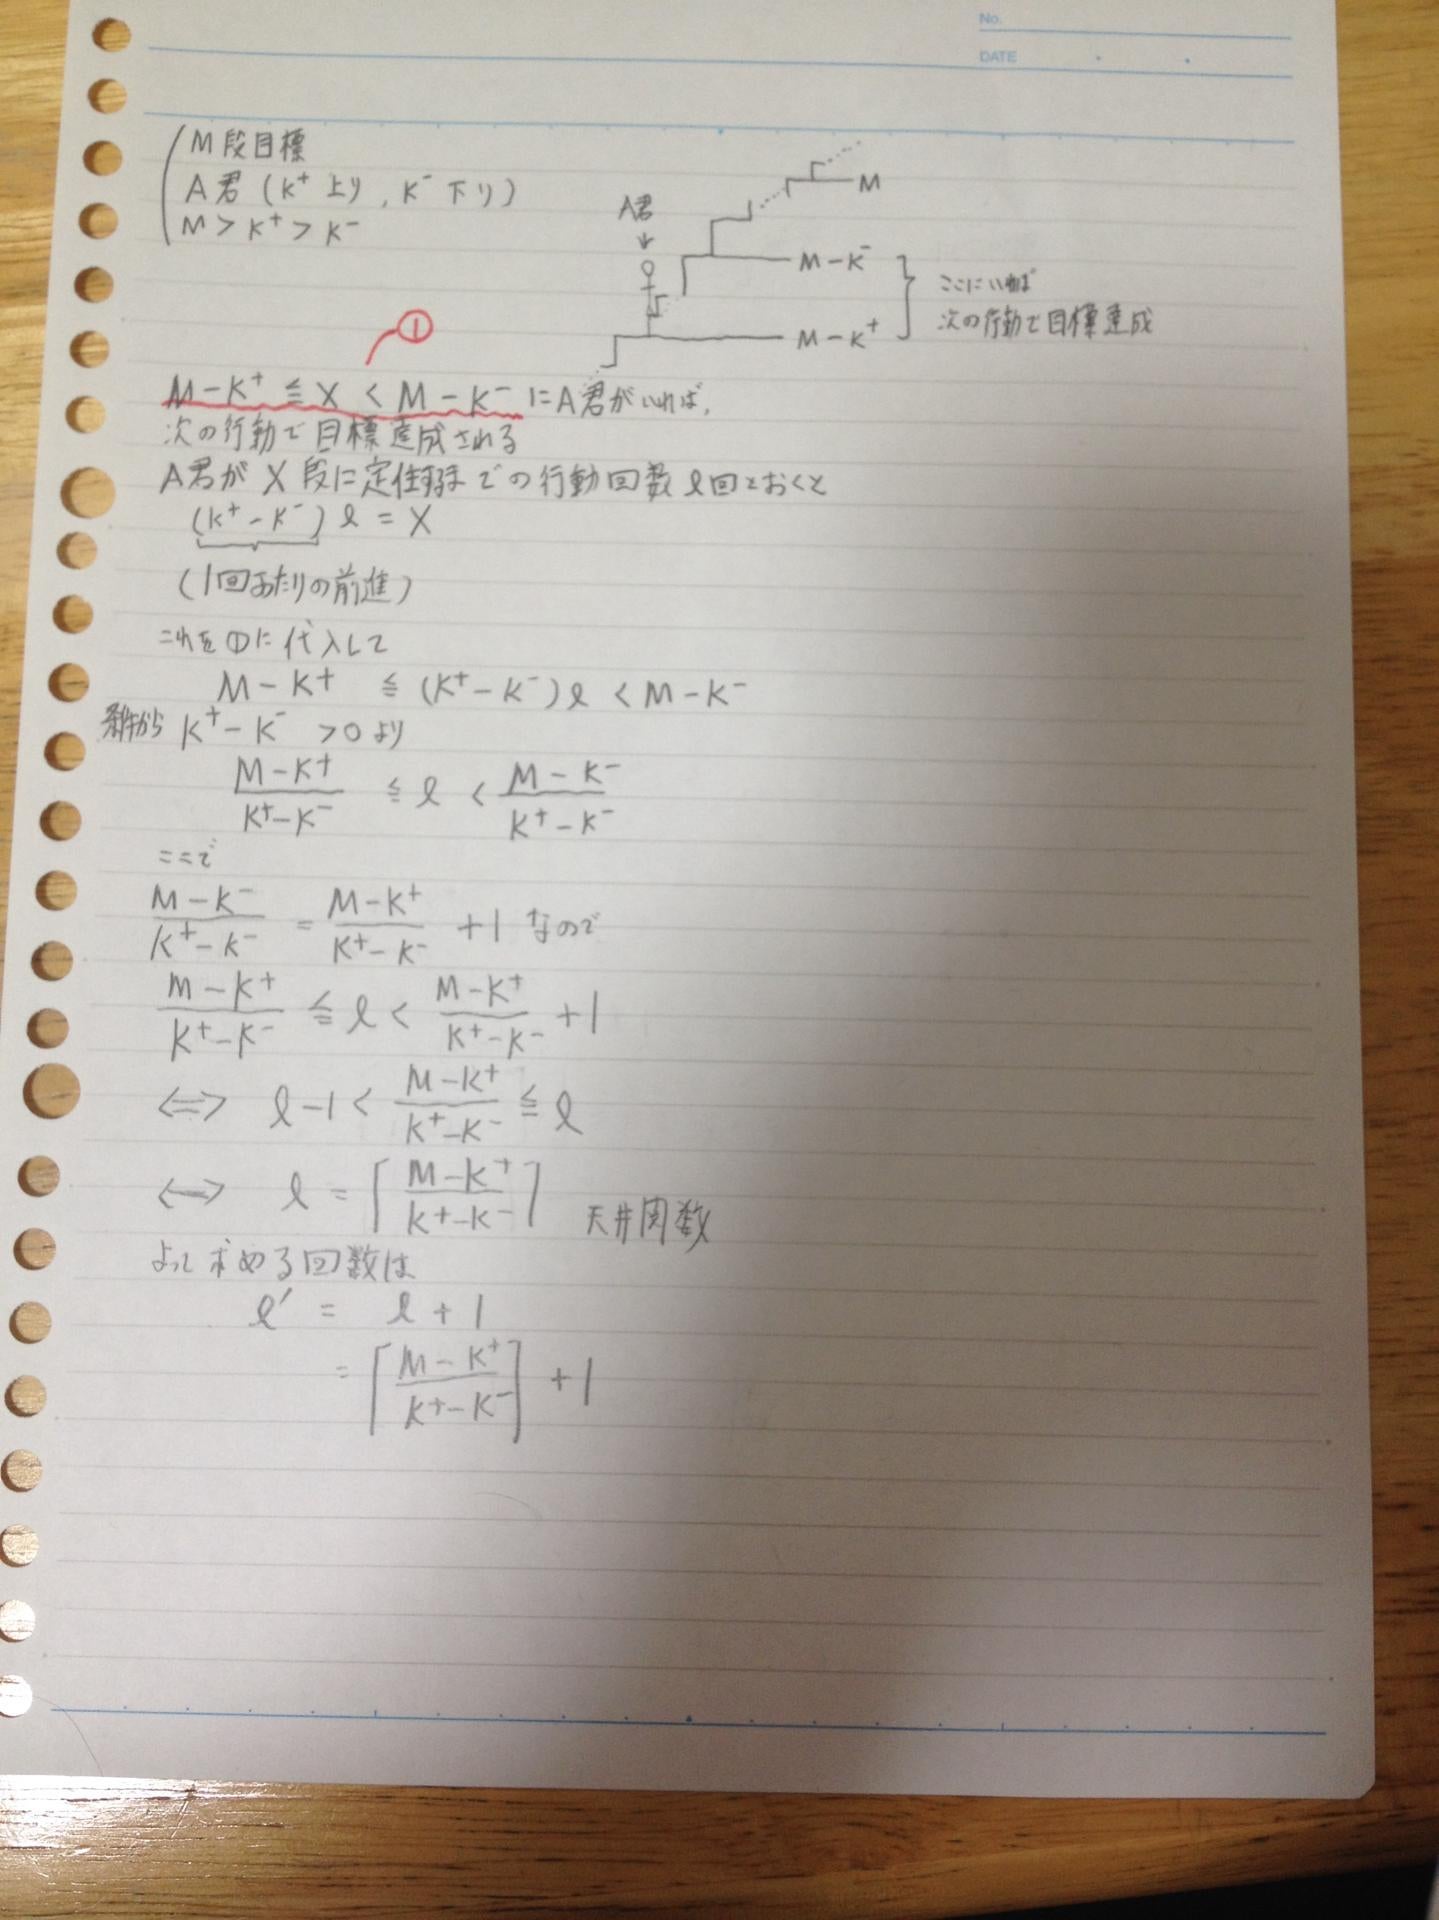 No.
DATE
M段目標
A君(K⁺上り,K⁻下り)
M>K⁺>K⁻
A君
↓
M
M-K⁻
M-K⁺
ここにいれば
次の行動で目標達成
①
M-K⁺≦X<M-K⁻にA君がいれば,
次の行動で目標達成される
A君がX段に定住するまでの行動回数ℓ回とおくと
(K⁺-K⁻)ℓ=X
(1回あたりの前進)
これを①に代入して
M-K⁺≦(K⁺-K⁻)ℓ<M-K⁻
条件から K⁺-K⁻>0より
(M-K⁺)/(K⁺-K⁻)≦ℓ<(M-K⁻)/(K⁺-K⁻)
ここで
(M-K⁻)/(K⁺-K⁻)=(M-K⁺)/(K⁺-K⁻)+1なので
(M-K⁺)/(K⁺-K⁻)≦ℓ<(M-K⁺)/(K⁺-K⁻)+1
⇔ ℓ-1<(M-K⁺)/(K⁺-K⁻)≦ℓ
⇔ ℓ=⌈(M-K⁺)/(K⁺-K⁻)⌉ 天井関数
よって求める回数は
ℓ'=ℓ+1
=⌈(M-K⁺)/(K⁺-K⁻)⌉+1